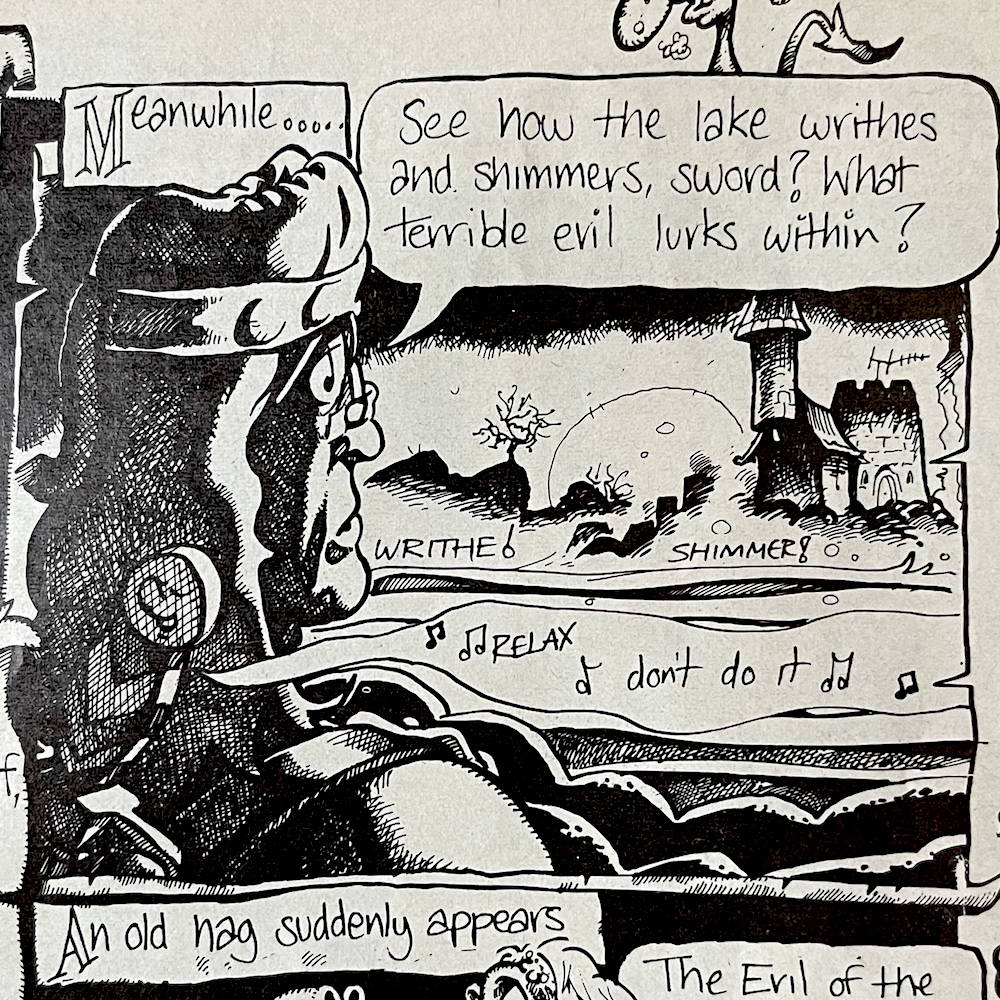 Meanwhile.....
See how the lake writhes
and shimmers, sword? What
terrible evil lurks within?
WRITHE!
SHIMMER!
RELAX
don't do it
f,
An old hag suddenly appears
The Evil of the